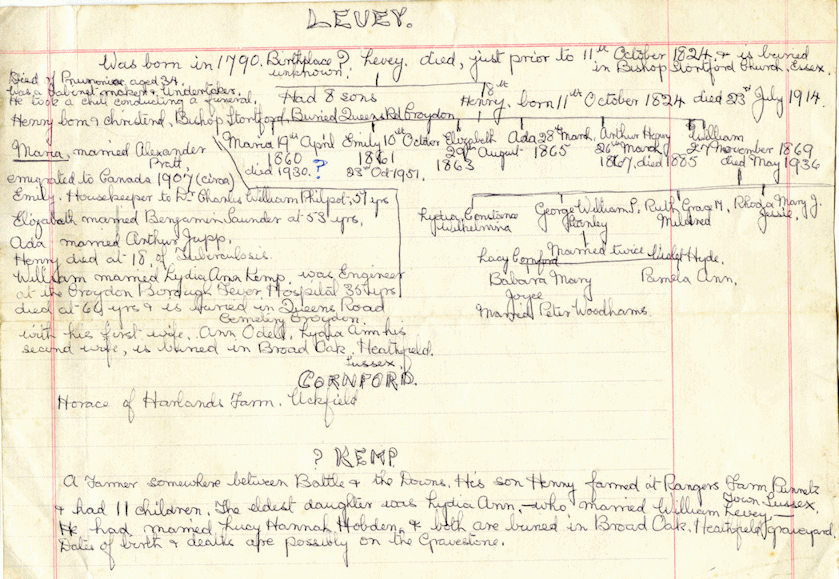 LEVEY.
Was born in 1790. Birthplace ? Levey. died, just prior to 11th October 1824, & is buried
unknown. in Bishop Stortford Church, Essex.
Died of Pneumonia, aged 34.
Was a Cabinet maker & Undertaker.
He took a chill conducting a funeral.
Had 8 sons
8th
Henry, born 11th October 1824 died 23rd July 1914.
Henry born & christend, Bishop Stortford, Buried Queens Rd Croydon
Maria, married Alexander
Pratt
emigrated to Canada 1907 (circa)
Maria 19th April
1860
died 1930. ?
Emily 10th October
1861
23rd Oct 1951.
Elizabeth
29th August
1863
Ada 28th March
1865
Arthur Henry
26th March
1867, died 1885
William
27 November 1869
died May 1936
Emily. Housekeeper to Dr Charles William Philpot, 57 yrs
Elizabeth married Benjamin Saunder at 53 yrs,
Ada married Arthur Jupp,
Henry died at 18, of Tuberculosis.
William married Lydia Ann Kemp, was Engineer
at the Croydon Borough Fever Hospital 35 yrs
died at 66 yrs & is buried in Queens Road
Cemetery Croydon
with his first wife, Ann Odell, Lydia Ann his
second wife, is buried in Broad Oak, Heathfield.
Sussex.
Lydia Constance
Wilhelmina
George William P.
Stanley
Ruth Grace M.
Mildred
Rhoda Mary J.
Jesie.
Married twice
Lucy Cornford
Violet Hyde,
Babara Mary
Joyce
Pamela Ann,
Married Peter Woodhams.
CORNFORD.
Horace of Harlands Farm. Uckfield
? KEMP
A Farmer somewhere between Battle & the Downs. His son Henry farmed at Rangers Farm, Punnets
Town, Sussex
& had 11 children. The eldest daughter was Lydia Ann, - who married William Levey -
He had married Lucy Hannah Hobden, & both are buried in Broad Oak, Heathfield graveyard.
Dates of birth & deaths are possibly on the Gravestone.